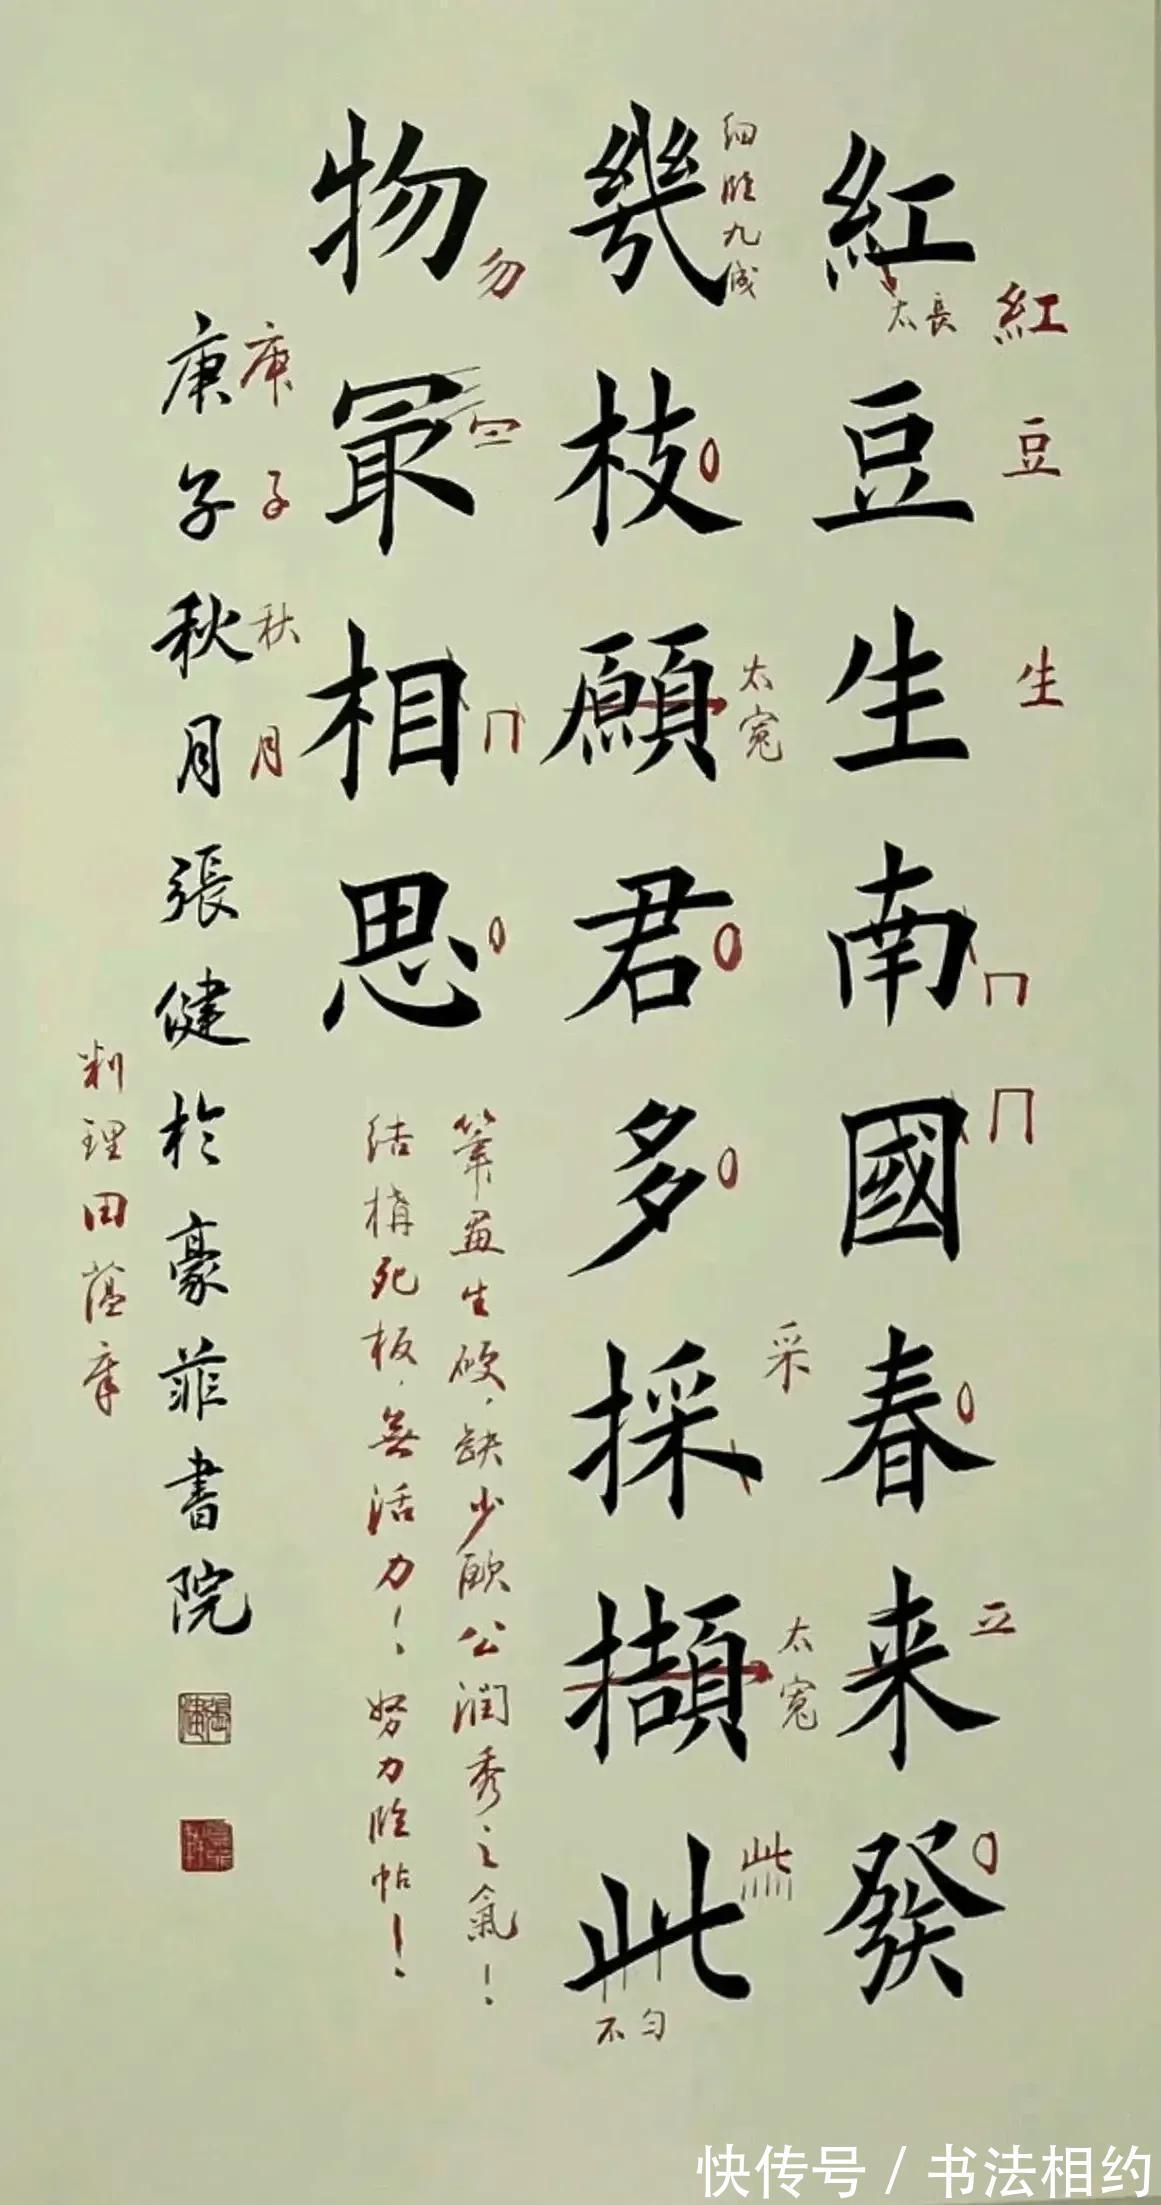 紅豆生南國春来發
幾枝願君多採擷此
物冣相思
庚子秋月張健於豪菲書院
紅
豆
生
太長
细临九成
太寬
采
太寬
不匀
勿
庚子秋月
筆画生硬，缺少欧公润秀之氣！
结構死板，無活力！努力临帖！
田蕴章
快传号/书法相约